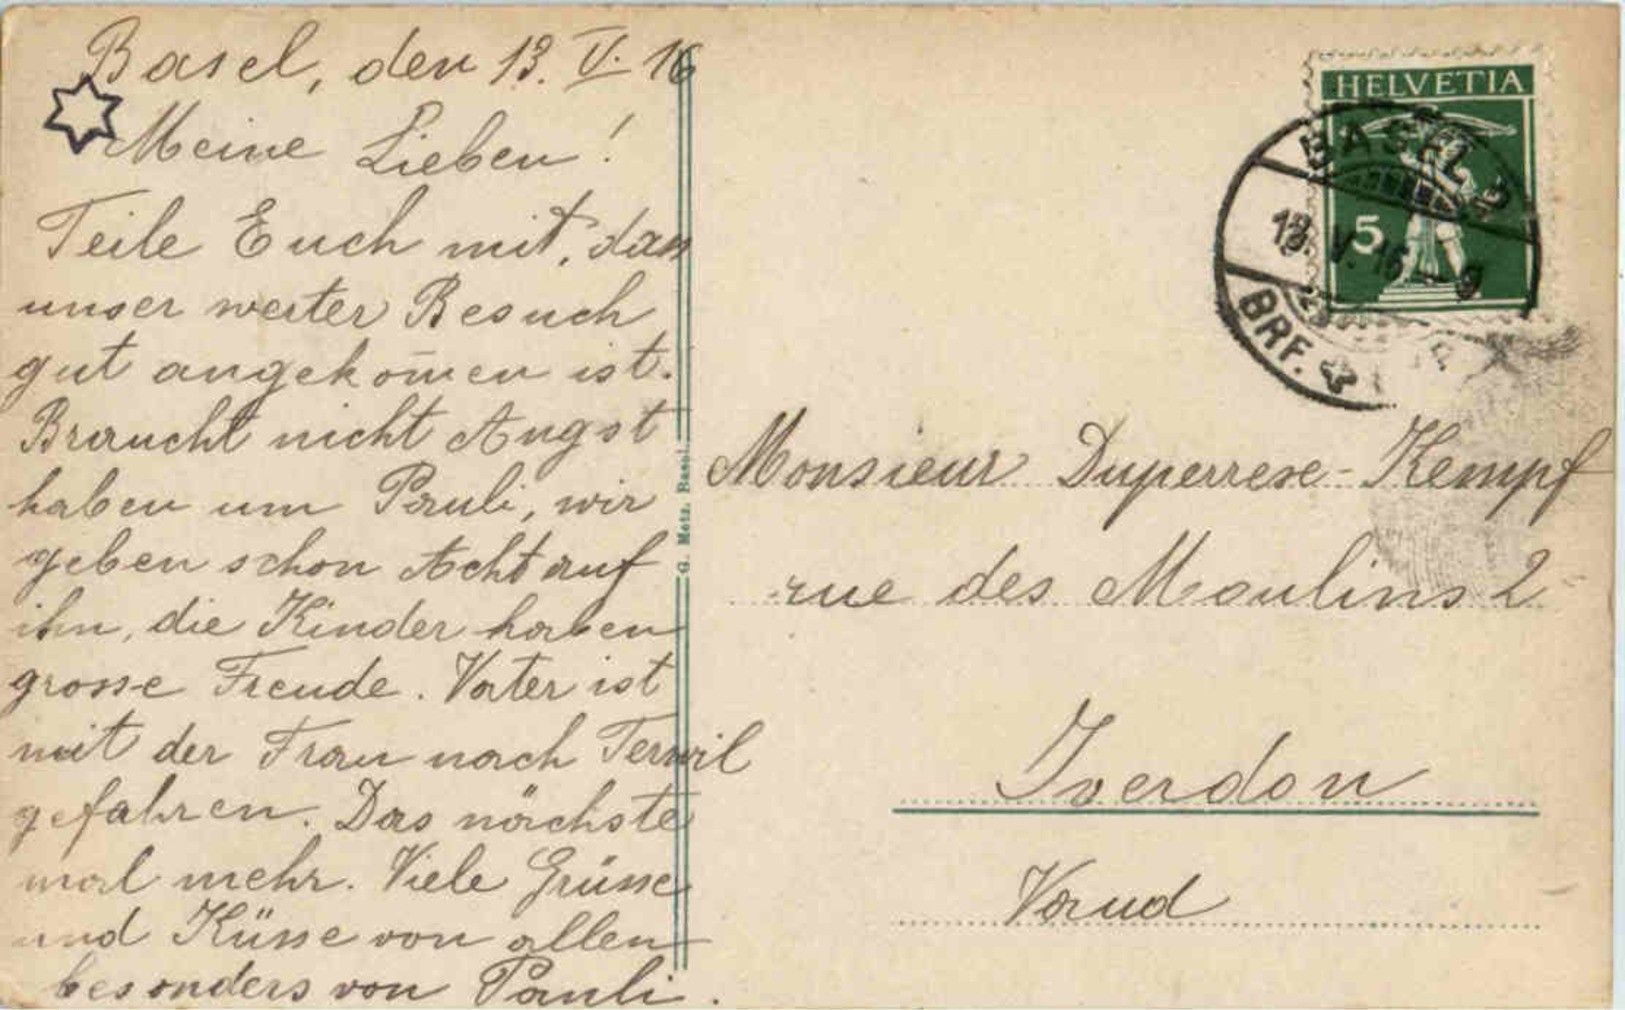 Basel, den 13. V. 16
Meine Lieben!
Teile Euch mit, dass
unser werter Besuch
gut angekom̄en ist.
Braucht nicht Angst
haben um Pauli, wir
geben schon Acht auf
ihn, die Kinder haben
grosse Freude. Vater ist
mit der Frau nach Terwil
gefahren. Das nächste
mal mehr. Viele Grüsse
und Küsse von allen
besonders von Pauli.
G. Metz, Basel.
HELVETIA
5
BASEL
13. V. 16 — 9
BRF.
Monsieur Duperrexe-Kempf
rue des Moulins 2
Yverdon
Vaud